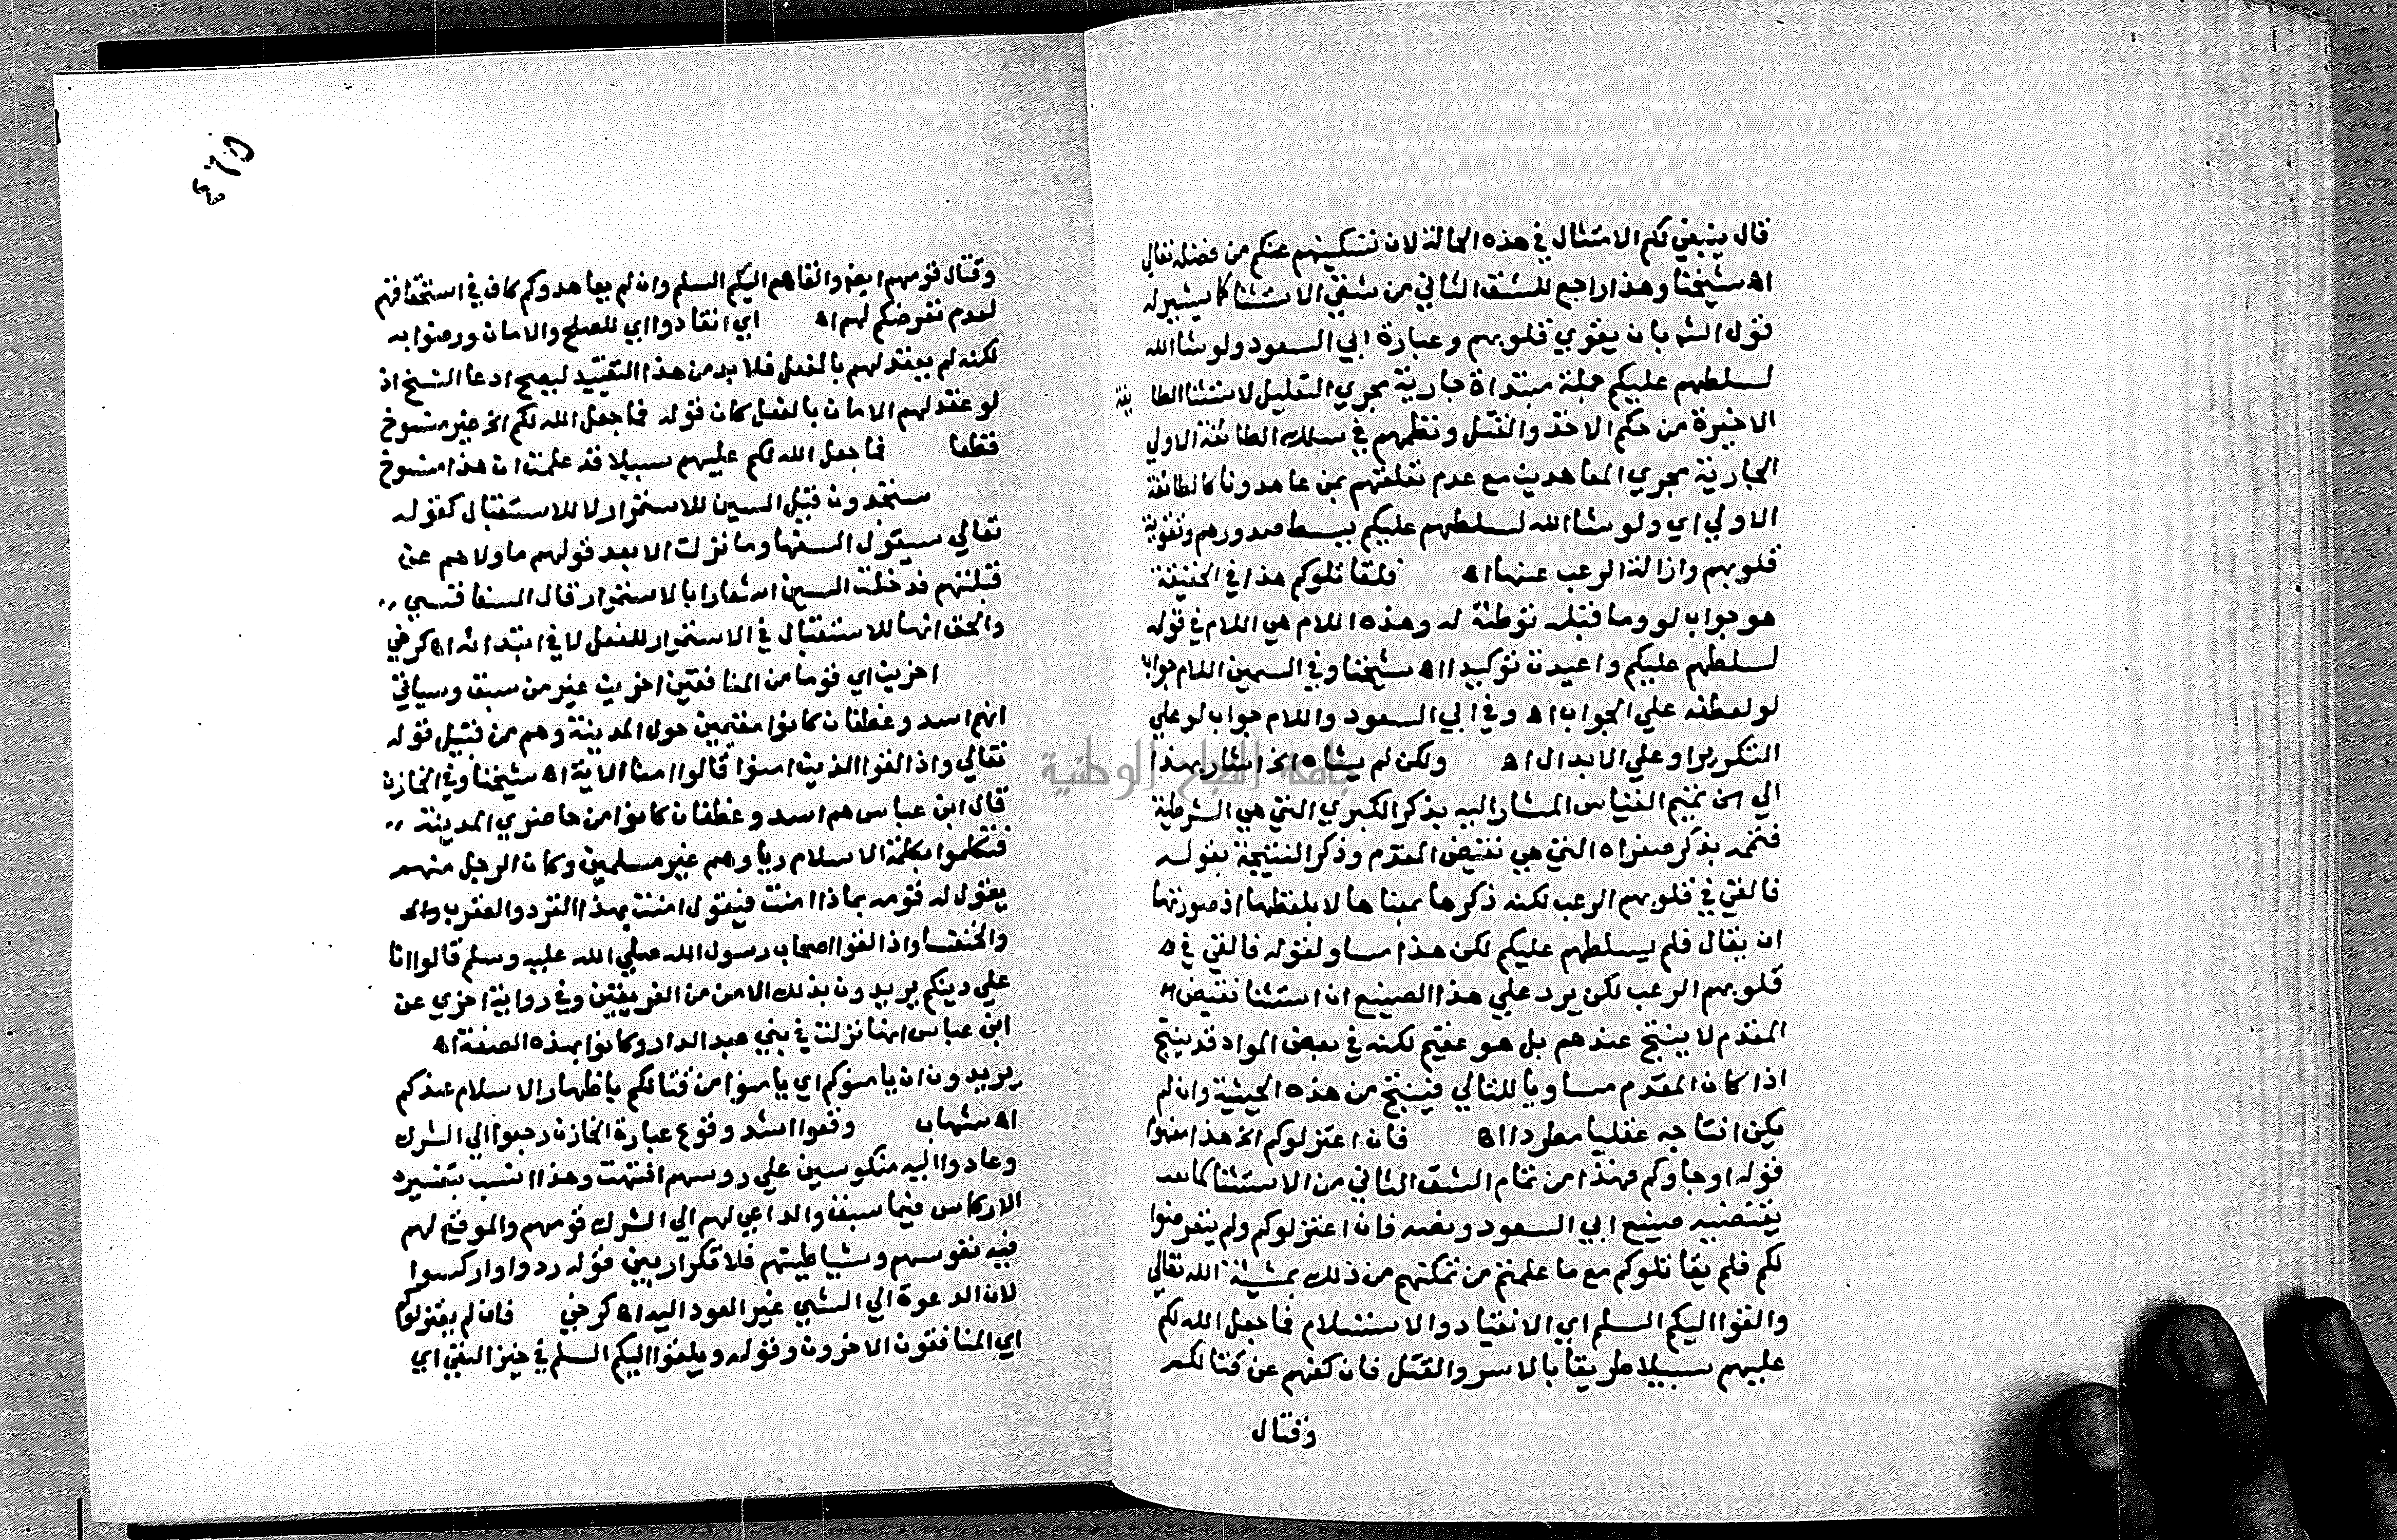 قال ينبغي لكم الامتثال في هذه الحالة لان تسكينهم عنكم من فضله تعالي
اه شيخنا وهذا راجع للشق الثاني من شقي الاستثنا كما يشير له
قول الشم بان يقوي قلوبهم وعبارة ابي السعود ولو شا الله
لسلطهم عليكم جملة مبتداة جارية مجري التعليل لاستثنا الطا يفة
الاخيرة من حكم الاخذ والقتل ونظمهم في سلك الطائفة الاولي
الجارية مجري المعاهدين مع عدم تعلقهم بمن عاهدونا كالطائفة
الاولي اي ولو شا الله لسلطهم عليكم ببسط صدورهم وتقوية
قلوبهم وازالة الرعب عنها اه فلقاتلوكم هذا في الحقيقة
هو جواب لو وما قبله توطئة له وهذه اللام هي اللام في قوله
لسلطهم عليكم واعيدت توكيدا اه شيخنا وفي السمين اللام جواب
لو لعطفه علي الجواب اه وفي ابي السعود واللام جواب لو علي
التكرير او علي الابدال اه ولكن لم يشاه الخ اشار بهذا
الي تتميم القياس المشار اليه بذكر الكبري التي هي الشرطية
فتممه بذكر صغراه التي هي نقيض المقدم وذكر النتيجة بقوله
فالقي في قلوبهم الرعب لكنه ذكرها بمعناها لا بلفظها اذ صورتها
ان يقال فلم يسلطهم عليكم لكن هذا مساو لقوله فالقي في
قلوبهم الرعب لكن يرد علي هذا الصنيع ان استثنا نقيض
المقدم لا ينتج عندهم بل هو عقيم لكنه في بعض المواد قد ينتج
اذا كان المقدم مساويا للتالي فينتج من هذه الحيثية وان لم
يكن انتاجه عقليا مطردا اه فان اعتزلوكم الخ هذا مفهوم
قوله او جاوكم فهذا من تمام الشق الثاني من الاستثنا كما
يقتضيه صنيع ابي السعود ونصه فان اعتزلوكم ولم يتعرضوا
لكم فلم يقاتلوكم مع ما علمتم من تمكنهم من ذلك بمشيئة الله تعالي
والقوا اليكم السلم اي الانقياد والاستسلام فما جعل الله لكم
عليهم سبيلا طريقا بالاسر والقتل فان كفهم عن قتالكم
وقتال
٤٦٥
وقتال قومهم ايضا والقاهم اليكم السلم وان لم يعاهدوكم كاف في استحقاقهم
لعدم تعرضكم لهم اه اي انقادوا اي للصلح والامان ورضوا به
لكنه لم يعقد لهم بالفعل فلا بد من هذا التقييد ليصح ادعا النسخ اذ
لو عقد لهم الامان بالفعل كان قوله فما جعل الله لكم الخ غير منسوخ
قطعا فما جعل الله لكم عليهم سبيلا قد علمت ان هذا منسوخ
ستجدون قيل السين للاستمرار لا للاستقبال كقوله
تعالي سيقول السفها وما نزلت الا بعد قولهم ما ولاهم عن
قبلتهم فدخلت السين اشعارا بالاستمرار قال السفاقسي
والحق انها للاستقبال في الاستمرار للفعل لا في ابتدائه اه كرخي
اخرين اي قوما من المنافقين اخرين غير من سبق وسياتي
انهم اسد وغطفان كانوا مقيمين حول المدينة وهم من قبيل قوله
تعالي واذا لقوا الذين امنوا قالوا امنا الاية اه شيخنا وفي الخازن
قال ابن عباس هم اسد وغطفان كانوا من حاضري المدينة
فتكلموا بكلمة الاسلام ريا وهم غير مسلمين وكان الرجل منهم
يقول له قومه بماذا امنت فيقول امنت بهذا القرد والعقرب
والخنفسا واذا لقوا اصحاب رسول الله صلي الله عليه وسلم قالوا انا
علي دينكم يريدون بذلك الامن من الفريقين وفي رواية اخري عن
ابن عباس انها نزلت في بني عبد الدار وكانوا بهذه الصفة اه
يريدون ان يامنوكم اي يامنوا من قتالكم باظهار الاسلام عندكم
اه شهاب وقعوا اشد وقوع عبارة الخازن رجعوا الي الشرك
وعادوا اليه منكوسين علي روسهم انتهت وهذا انسب بتفسيره
الاركاس فيما سبق والداعي لهم الي الشرك قومهم والموقع لهم
فيه نفوسهم وشياطينهم فلا تكرار بين قوله ردوا واركسوا
لان الدعوة الي الشي غير العود اليه اه كرخي فان لم يعتزلوكم
اي المنافقون الاخرون وقوله ويلقوا اليكم السلم في حيز النفي اي